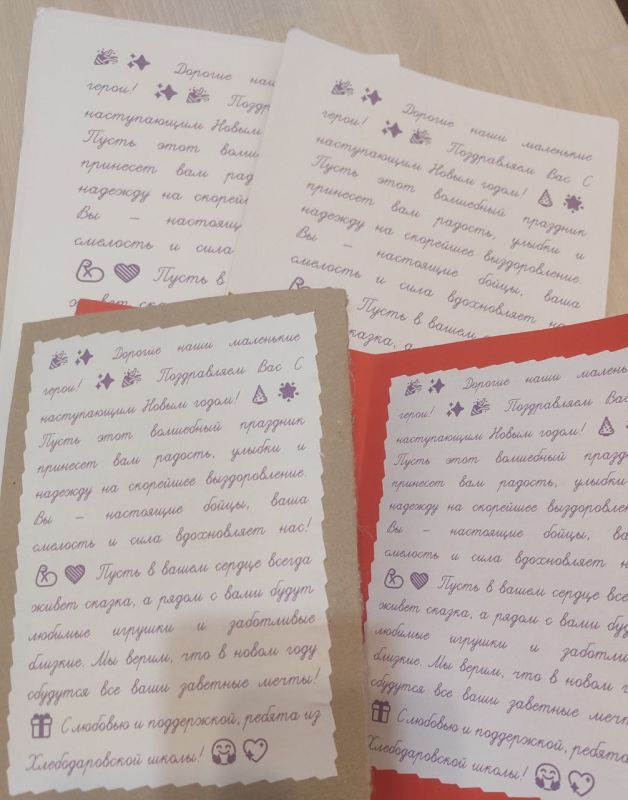 🎉✨ Дорогие наш
герои! ✨🎉 Поздр
наступающим Новым
Пусть этот волш
принесет вам рад
надежду на скорей
Вы – настоящ
смелость и сила
💪💜 Пусть в
живет ска
🎉✨ Дорогие наши маленькие
герои! ✨🎉 Поздравляем Вас С
наступающим Новым годом! 🎄🌟
Пусть этот волшебный праздник
принесет вам радость, улыбки и
надежду на скорейшее выздоровление.
Вы – настоящие бойцы, ваша
смелость и сила вдохновляет на
Пусть в вашем с
сказка, а
🎉✨ Дорогие наши маленькие
герои! ✨🎉 Поздравляем Вас С
наступающим Новым годом! 🎄🌟
Пусть этот волшебный праздник
принесет вам радость, улыбки и
надежду на скорейшее выздоровление.
Вы – настоящие бойцы, ваша
смелость и сила вдохновляет нас!
💪💜 Пусть в вашем сердце всегда
живет сказка, а рядом с вами будут
любимые игрушки и заботливые
близкие. Мы верим, что в новом году
сбудутся все ваши заветные мечты!
🎁 С любовью и поддержкой, ребята из
Хлебодаровской школы! 🤗💖
🎉✨ Дорогие наши малень
герои! ✨🎉 Поздравляем Вас
наступающим Новым годом! 🎄
Пусть этот волшебный празд
принесет вам радость, улыбки
надежду на скорейшее выздоровлен
Вы – настоящие бойцы, ва
смелость и сила вдохновляет н
💪💜 Пусть в вашем сердце все
живет сказка, а рядом с вами буд
любимые игрушки и заботли
близкие. Мы верим, что в новом г
сбудутся все ваши заветные мечт
🎁 С любовью и поддержкой, ребята
Хлебодаровской школы! 🤗💖